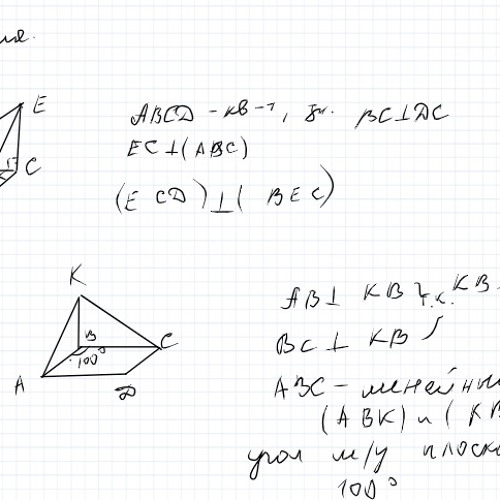 E
C
ABCD - кв-т, BC⊥DC
EC⊥(ABC)
(ECD)⊥(BEC)
K
B
100°
C
A
D
AB⊥ KB т.к. KB
BC⊥ KB
ABC - линейный
(ABK) и (KB
угол м/у плоско
100°